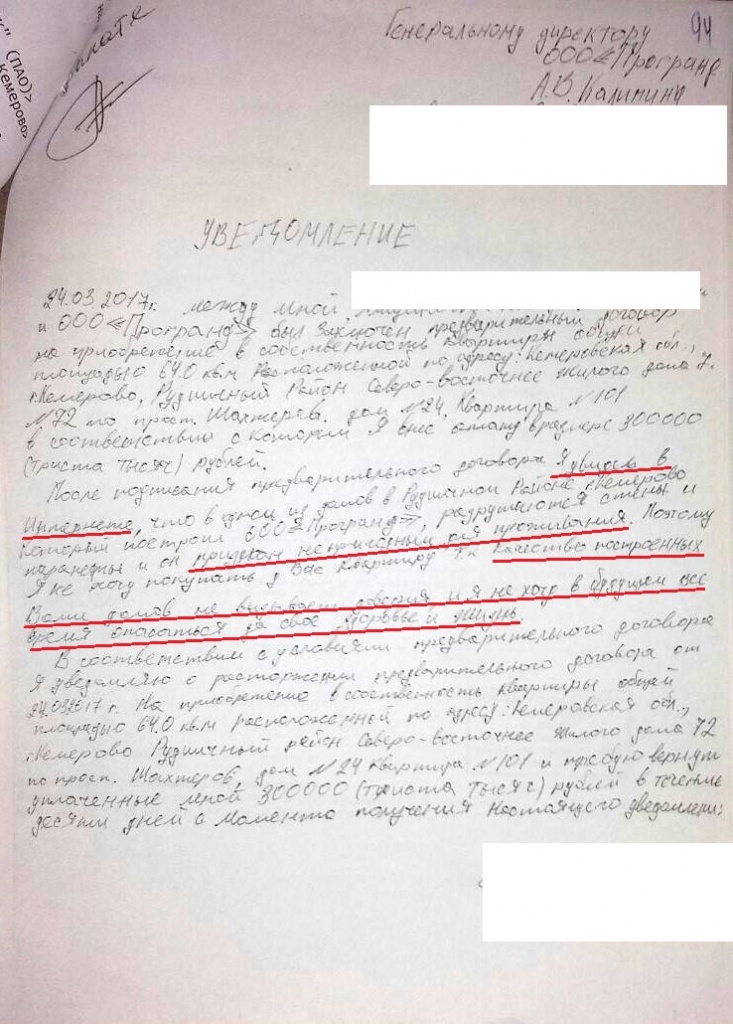 " (ПАО)>
Кемерово>
оплате
94
Генеральному директору
ООО «Програнд
А.В. Калинину
УВЕДОМЛЕНИЕ
24.03.2017г. между мной,
и ООО «Програнд» был заключен предварительный договор
на приобретение в собственность квартиры общей
площадью 64.0 кв.м расположенной по адресу: Кемеровская обл.,
г.Кемерово, Рудничный Район Северо-восточнее жилого дома
№72 по просп. Шахтеров. дом №24, Квартира №101
в соответствии с которым я внес оплату в размере 300000
(триста тысяч) рублей.
После подписания предварительного договора я увидел в
Интернете, что в одном из домов в Рудничном Районе г.Кемерово
который построил ООО «Програнд», разрушаются стены и
парапеты и он признан непригодным для проживания. Поэтому
Я не хочу покупать у Вас квартиру т.к качество построенных
Вами домов не вызывает доверия и я не хочу в будущем все
время опасаться за свое здоровье и жизнь.
В соответствии с условиями предварительного договора
Я уведомляю о расторжении предварительного договора от
24.032017г. На приобретение в собственность квартиры общей
площадью 64.0 кв.м расположенный по адресу: Кемеровская обл.,
г.Кемерово Рудничный район Северо-восточнее жилого дома 72
по просп. Шахтеров, дом №24 квартира №101 и требую вернуть
уплаченные мной 300000 (триста тысяч) рублей в течение
десяти дней с момента получения настоящего уведомлени: